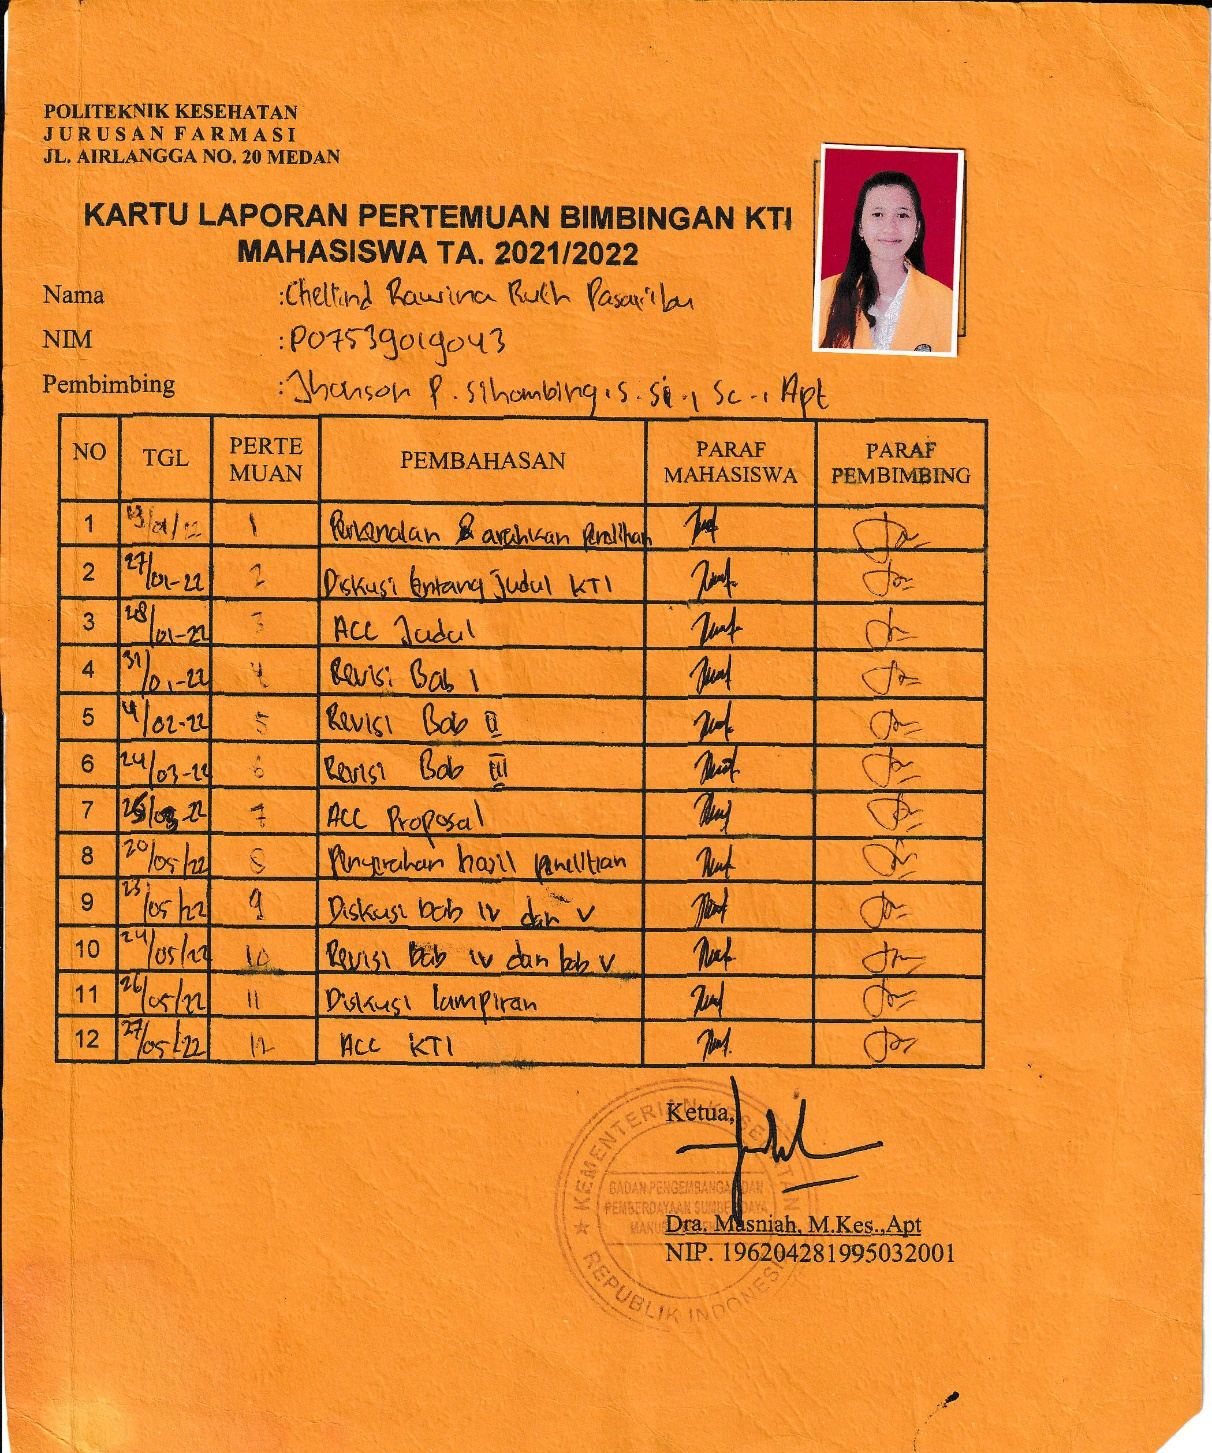 POLITEKNIK KESEHATAN
JURUSAN FARMASI
JL. AIRLANGGA NO. 20 MEDAN
KARTU LAPORAN PERTEMUAN BIMBINGAN KTI
MAHASISWA TA. 2021/2022
Nama : Rawina Ruth Pasaribu
NIM : P07539019043
Pembimbing : Jhonson P. Sihombing, S.Si., Sc., Apt
NO TGL PERTE MUAN PEMBAHASAN PARAF MAHASISWA PARAF PEMBIMBING
1 1 Perkenalan & arahkan penelitian
2 27/01-22 2 Diskusi tentang judul KTI
3 28/01-22 3 ACC Judul
4 31/01-22 4 Revisi Bab I
5 4/02-22 5 Revisi Bab II
6 24/03-22 6 Revisi Bab III
7 7 ACC Proposal
8 20/05/22 8 Penyerahan hasil penelitian
9 23/05/22 9 Diskusi bab IV dan V
10 24/05/22 10 Revisi bab IV dan bab V
11 26/05/22 11 Diskusi lampiran
12 27/05-22 12 ACC KTI
Ketua,
KEMENTERIAN KESEHATAN
BADAN PENGEMBANGAN DAN
PEMBERDAYAAN SUMBER DAYA
REPUBLIK INDONESIA
Dra. Masniah, M.Kes.,Apt
NIP. 196204281995032001